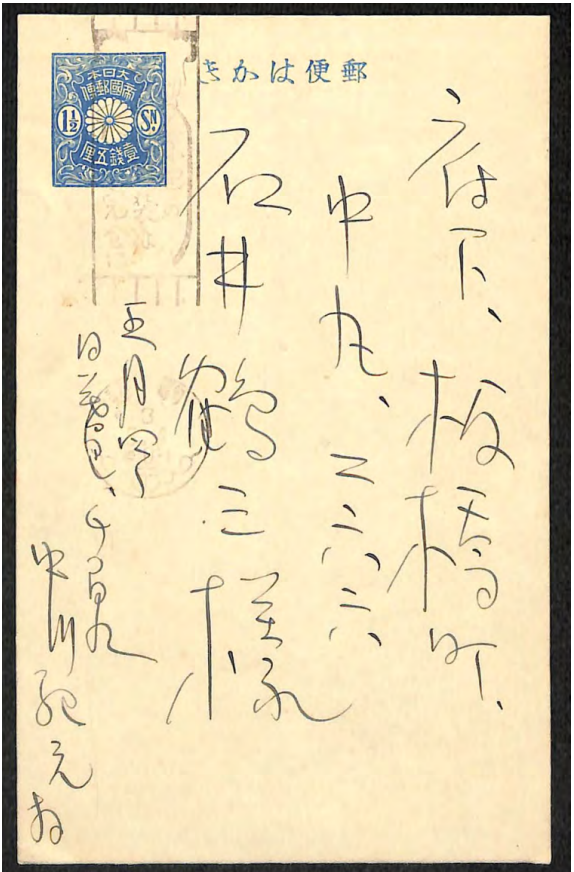 郵便はかき
大日本
帝國郵便
1½ Sn.
壹錢五厘
府下、板橋町、
中丸、二六六
石井鶴三様
五月四日
中川紀元